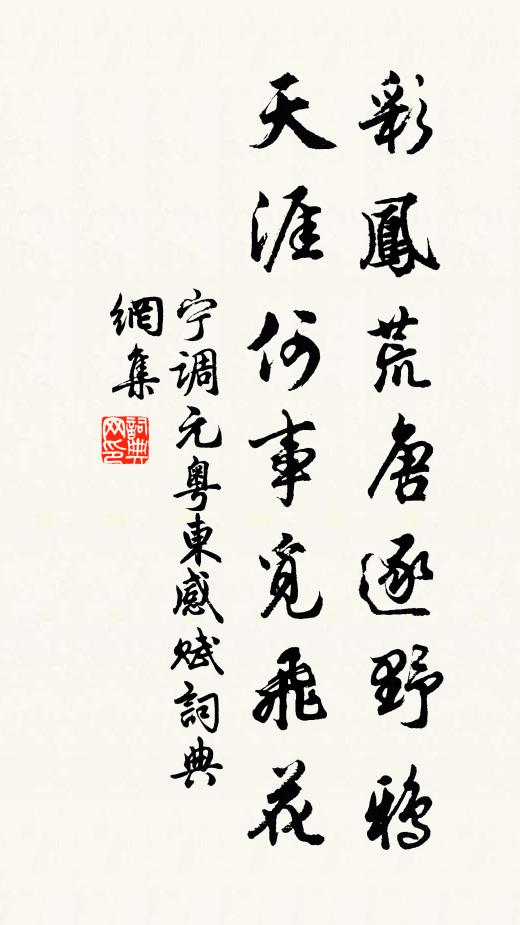 彩鳳荒唐逐野鴉
天涯何事覓飛花
宁调元粤東感赋詞典
網集
詞典
网印